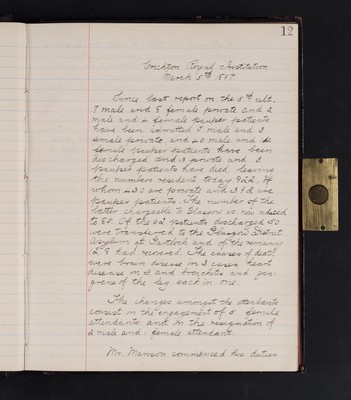 12
Crichton Royal Institution
March 5th 1897
Since last report on the 5th ult.
7 male and 8 female private and 2
male and 2 female pauper patients
have been admitted 5 male and 3
female private and 20 male and
female pauper patients have been
discharged and 1 private and 3
pauper patients have died, leaving
the numbers resident today
whom 230 are private and are
pauper patients. The number of the
latter chargeable to Glasgow is now reduced
to 85. Of the patients discharged 50
were transferred to the Glasgow District
Asylum at Gartloch and of the remaining
8 had recovered. The causes of death
were brain disease in 3 cases, heart
disease in 2, and bronchitis and gan-
grene of the leg each in one.
The changes amongst the attendants
consist in the engagement of 5 female
attendants and in the resignation of
2 male and 1 female attendant.
Mr. Manson commenced his duties